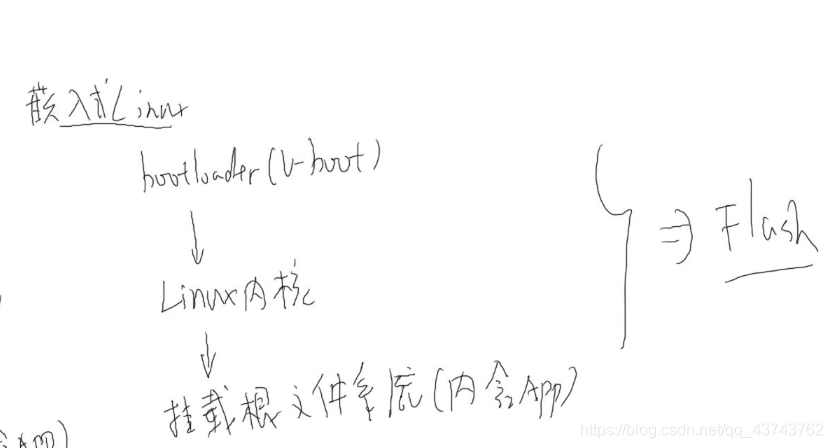 嵌入式Linux
bootloader(U-boot)
Linux内核
挂载根文件系统(内含App)
⇒ Flash
App)
https://blog.csdn.net/qq_43743762